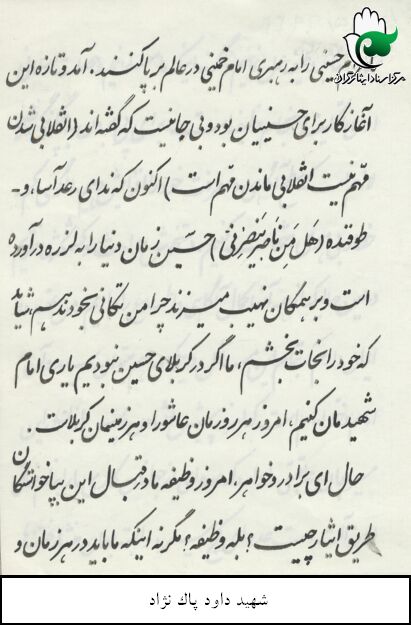 مرکز اسناد ایثارگران
حسینی را به رهبری امام خمینی در عالم بر پا کنند. آمد و تازه این
آغاز کار برای حسینیان بود و بی جا نیست که گفته اند (انقلابی شدن
مهم نیست انقلابی ماندن مهم است) اکنون که ندای رعد آسا، و-
طوفنده (هَل مِن ناصِرٍ یَنصُرنی) حسین زمان دنیا را به لرزه در آورده
است و بر همگان نهیب میزند چرا من تکانی بخود ندهم شاید
که خود را نجات بخشم، ما اگر در کربلای حسین نبودیم یاری امام
شهیدمان کنیم، امروز هر روزمان عاشورا و هر زمینمان کربلاست.
حال ای برادر و خواهر، امروز وظیفه ما در قبال این بپاخواستگان
طریق ایثار چیست؟ بله وظیفه؟ مگر نه اینکه ما باید در هر زمان و
شهید داود پاك نژاد